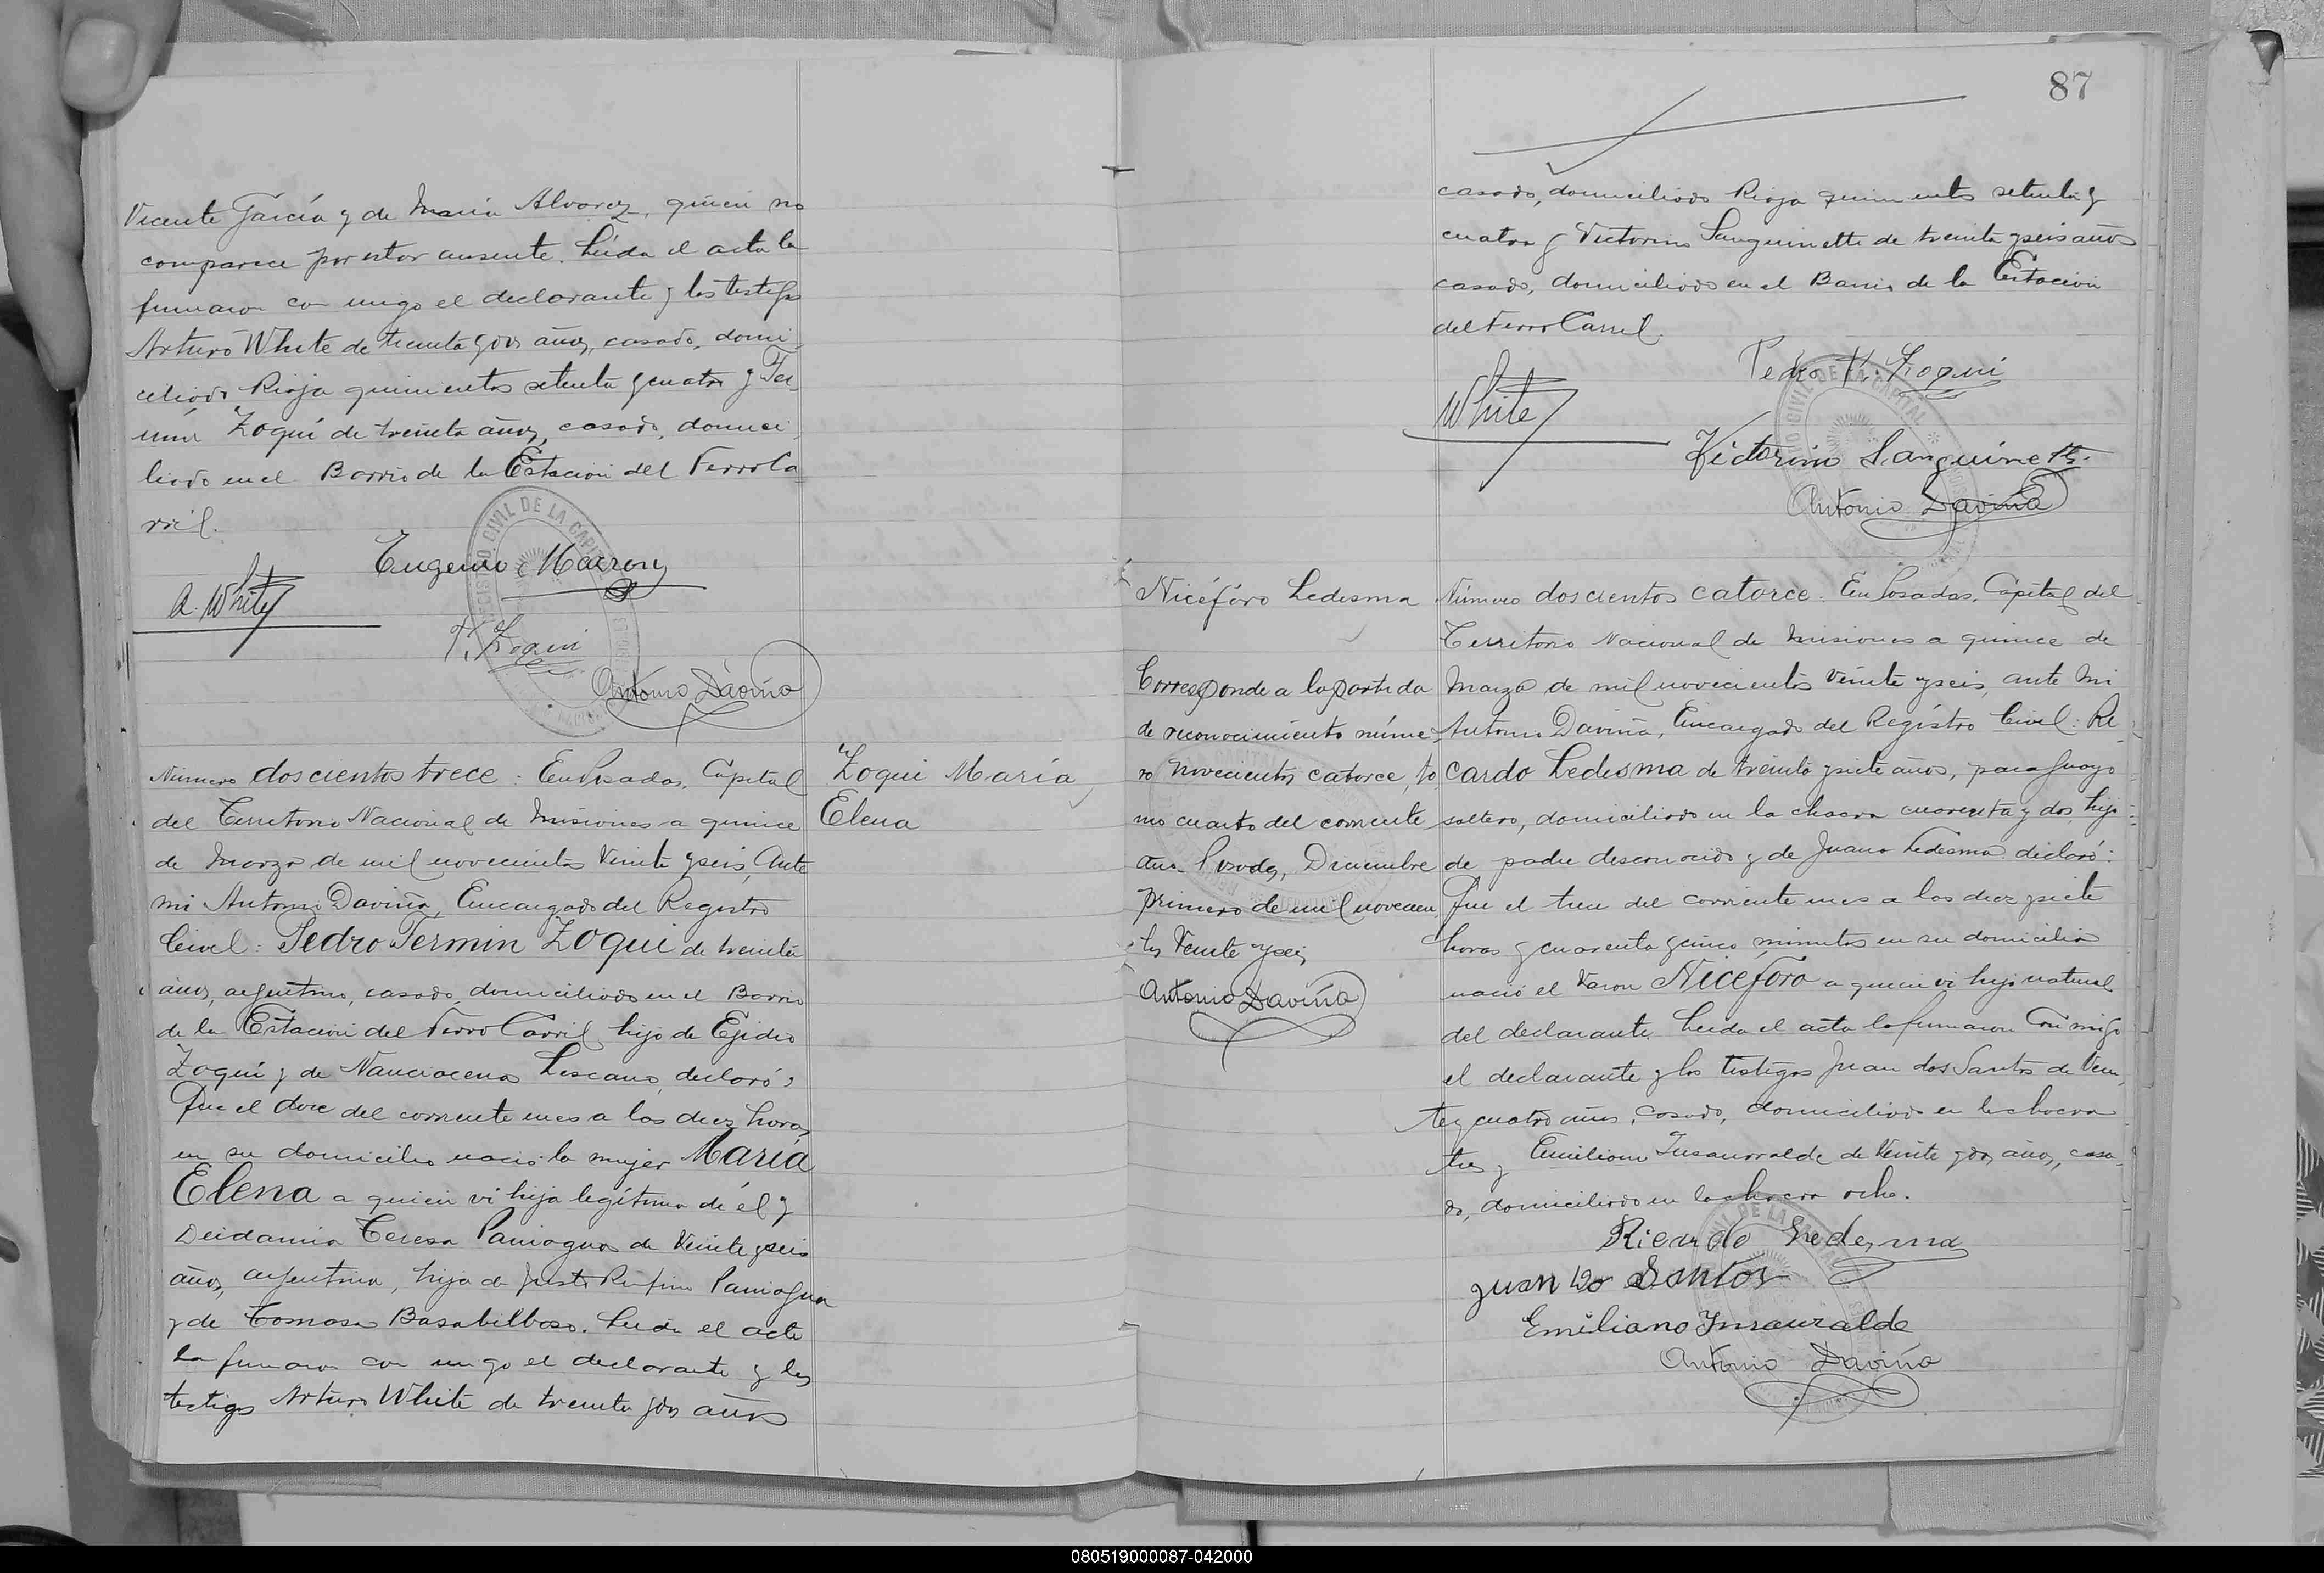 Vicente García y de María Alvarez, quien no
comparece por estar ausente. Leída el acta la
firmaron con migo el declarante y los testigos
Arturo White de treinta y dos años, casado, domi-
ciliado Rioja quinientos setenta y cuatro y Fer-
mín Zoqui de treinta años, casado, domici-
liado en el Barrio de la Estación del Ferro Ca
rril.
Eugenio
A. White
Zoqui
Antonio Daviña
Número doscientos trece: En Posadas, Capital
del Territorio Nacional de Misiones a quince
de Marzo de mil novecientos veinte y seis, Ante
mi Antonio Daviña, Encargado del Registro
Civil: Pedro Fermin Zoqui de treinta
años, argentino, casado, domiciliado en el Barrio
de la Estación del Ferro Carril, hijo de Egidio
Zoqui y de Lescano, declaró:
Que el doce del corriente mes a las diez horas
en su domicilio nació la mujer María
Elena a quien vi hija legítima de él y
Deidamia Teresa Paniagua de veinte y seis
años, argentina, hija de Justo Rufino Paniagua
y de Tomasa Basabilbaso. Leida el acta
la firmaron con migo el declarante y los
testigos Arturo White de treinta y dos años
Zoqui María
Elena
87
casado, domiciliado Rioja quinientos setenta y
cuatro y Victorino Sanguinetti de treinta y seis años
casado, domiciliado en el Barrio de la Estación
del Ferro Carril.
Pedro F. Zoqui
White
Victorino Sanguinetti
Antonio Daviña
Nicéforo Ledesma
Corresponde a la partida
de reconocimiento núme-
ro novecientos catorce, to
mo cuarto del corriente
año. Posadas, Diciembre
primero de mil novecien
tos veinte y seis
Antonio Daviña
Número doscientos catorce: En Posadas, Capital del
Territorio Nacional de Misiones a quince de
Marzo de mil novecientos veinte y seis, ante mi
Antonio Daviña, Encargado del Registro Civil: Ri-
cardo Ledesma de treinta y siete años, paraguayo
soltero, domiciliado en la chacra cuarenta y dos, hijo
de padre desconocido y de Juana Ledesma declaró:
Que el trece del corriente mes a las diez y siete
horas y cuarenta y cinco minutos en su domicilio
nació el varon Nicéforo a quien vi hijo natural
del declarante. Leida el acta la firmaron con migo
el declarante y los testigos Juan dos Santos de vein-
te y cuatro años, casado, domiciliado en la chacra
tres y Emiliano Insaurralde de veinte y dos años, casa-
do, domiciliado en la chacra ocho.
Ricardo Ledesma
Juan Do Santos
Emiliano Insauralde
Antonio Daviña
080519000087-042000